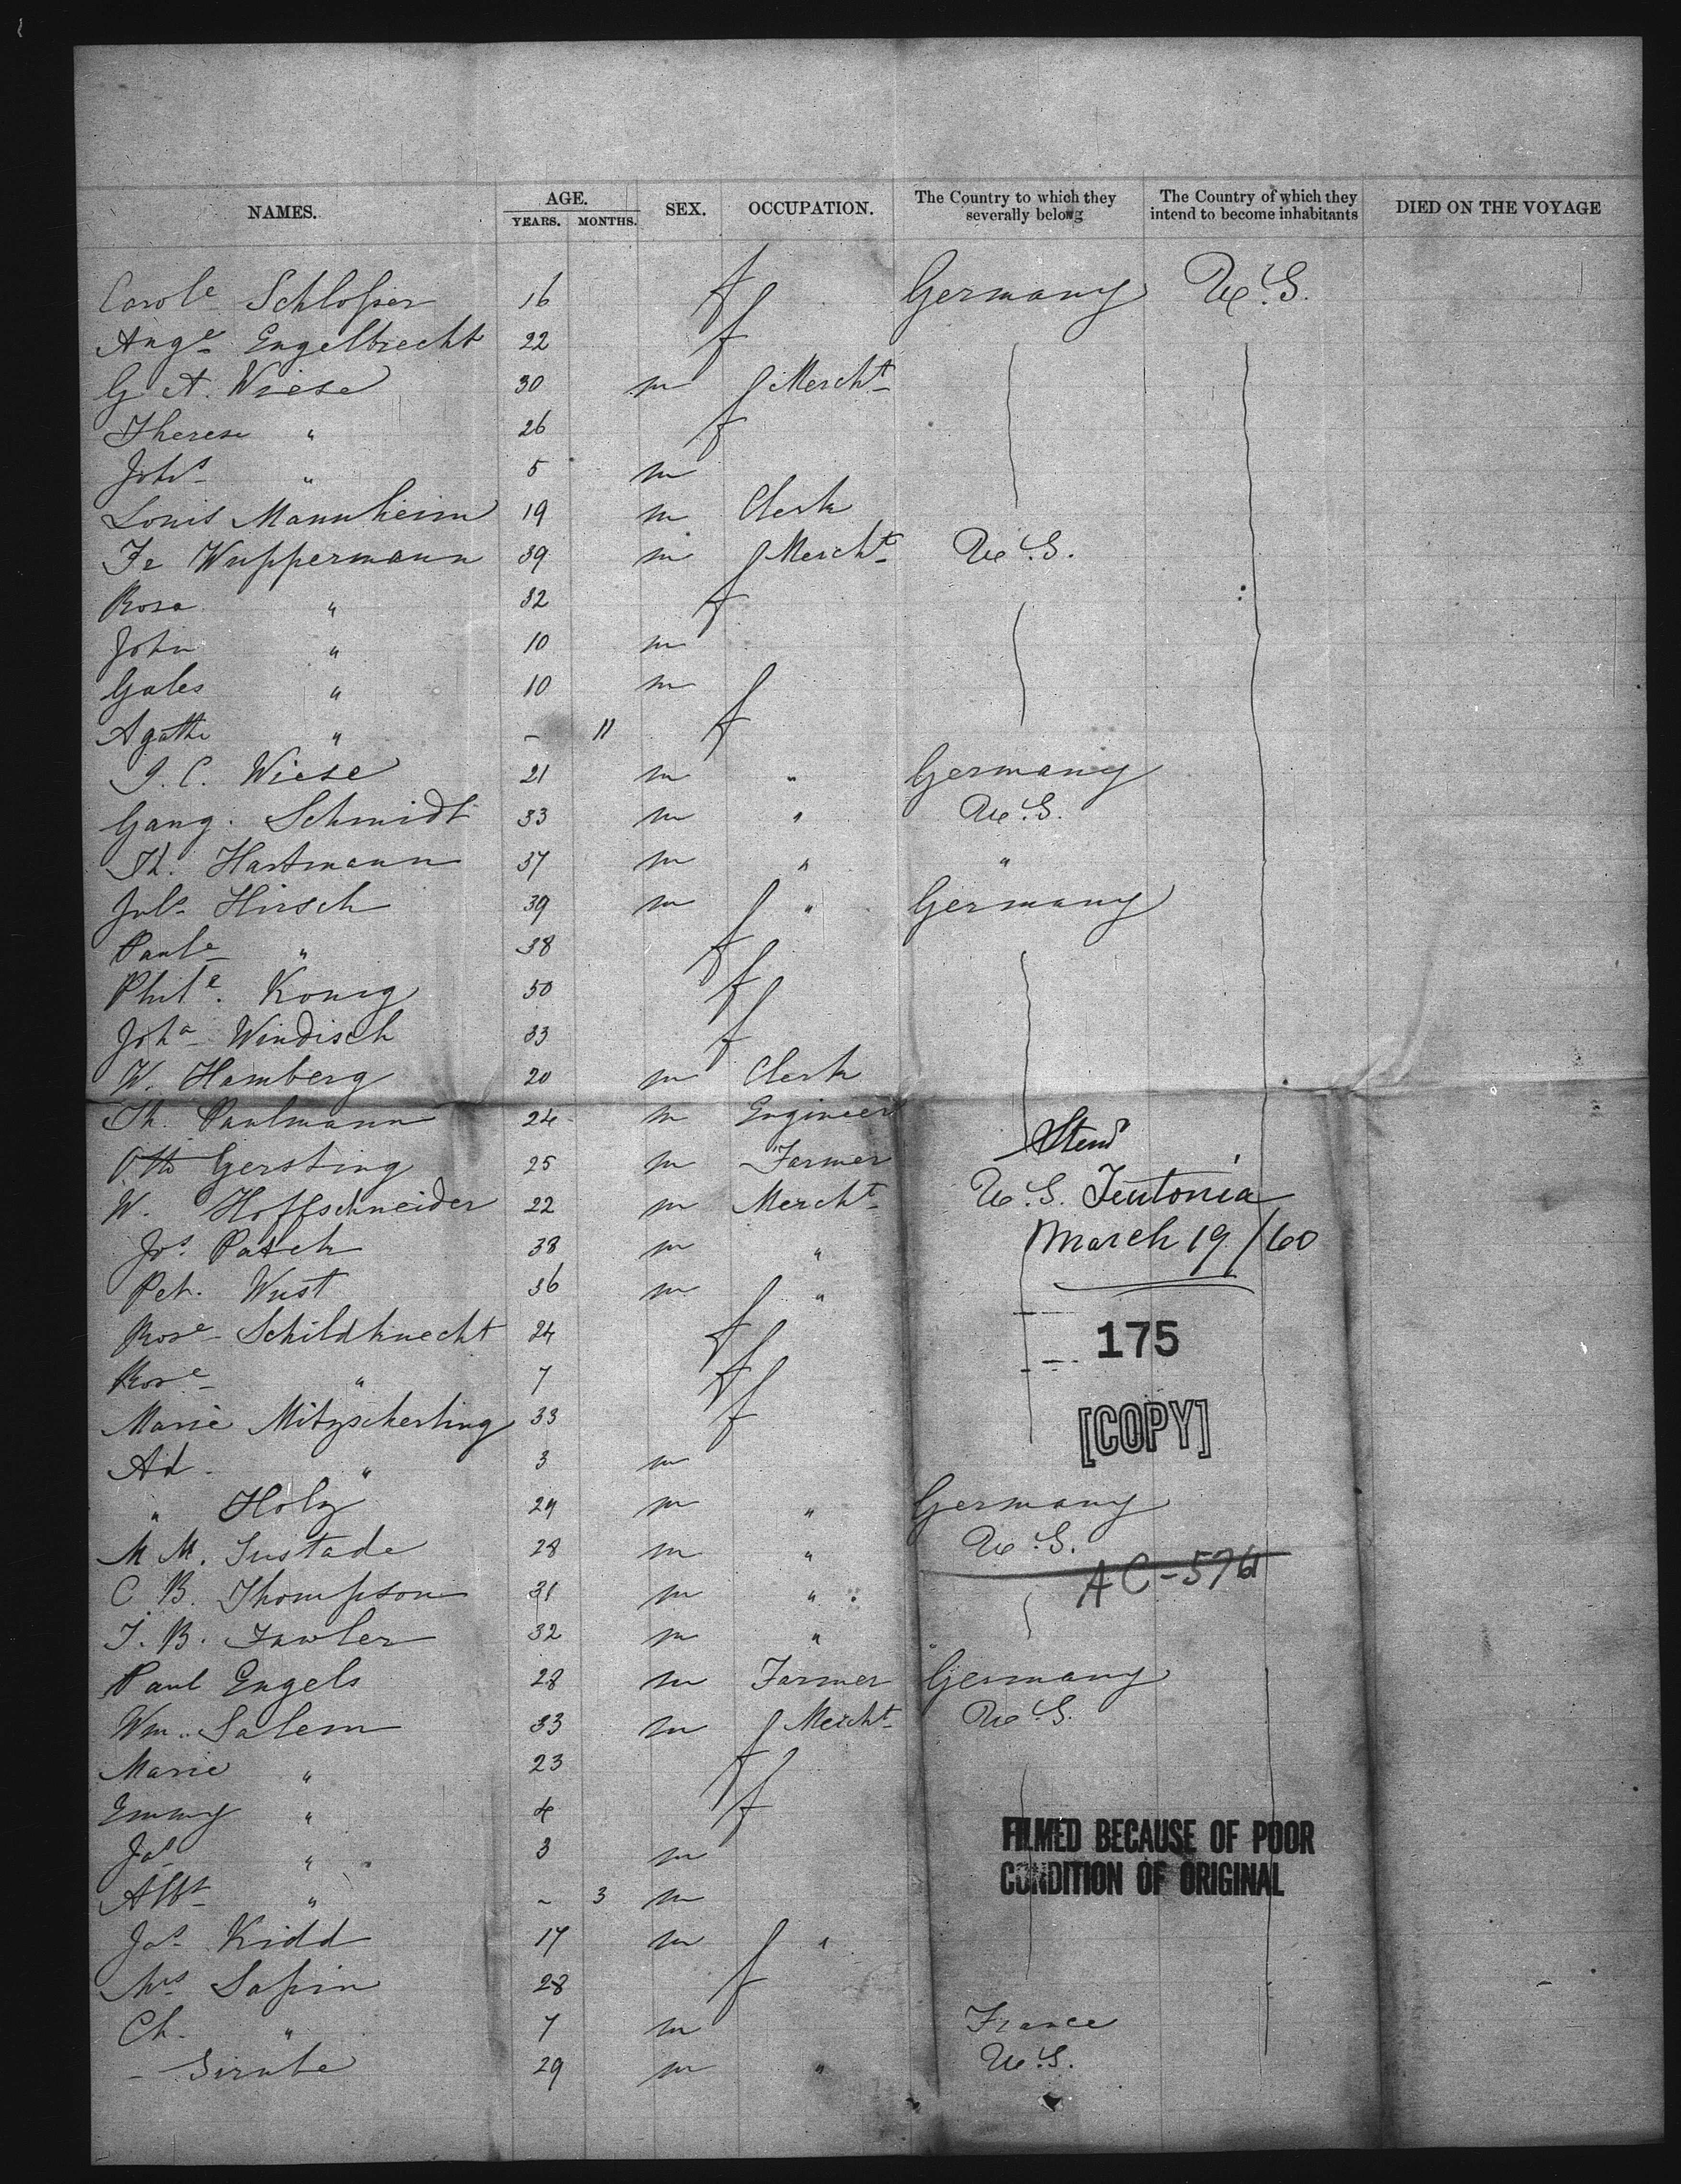 NAMES. AGE. YEARS. MONTHS. SEX. OCCUPATION. The Country to which they severally belong The Country of which they intend to become inhabitants DIED ON THE VOYAGE
Carole Schlosser 16 f Germany U.S.
Auge Engelbrecht 22 f
G A. Wiese 30 m Mercht
Therese " 26 f
Johs " 5 m
Louis Mannheim 19 m Clerk
Fr Wuppermann 39 m Mercht U.S.
Rosa " 32 f
John " 10 m
Gales " 10 m
Agathe " - 11 f
I. C. Wiese 21 m " Germany
Gang. Schmidt 33 m " U.S.
Th. Hartmann 37 m " "
Juls Hirsch 39 m " Germany
Paule " 38 f
Phile. Konig 50 f
Joha Windisch 33 f
W. Hamberg 20 m Clerk
Th. Paulmann 24 m Engineer
Otto Gersting 25 m Farmer
W. Hoffschneider 22 m Mercht
Jos. Patch 38 m "
Pet. Wust 36 m "
Rose Schildknecht 24 f
Rose " 7 f
Marie Mitzscherling 33 f
Ad. " 3 m
" Holz 29 m " Germany
M M. Sustade 28 m " U.S.
C B. Thompson 31 m "
J. B. Fawler 32 m "
Paul Engels 28 m Farmer Germany
Wm. Salem 33 m Mercht U.S.
Marie " 23 f
Emmy " 4 f
Jas " 3 m
Albt " - 3 m
Jas Kidd 17 m "
Mrs Sapin 28 f
Ch. " 7 m France
- Sirube 29 m " U.S.
Stmr
U.S. Teutonia
March 19/60
175
[COPY]
AC-576
FILMED BECAUSE OF POOR
CONDITION OF ORIGINAL